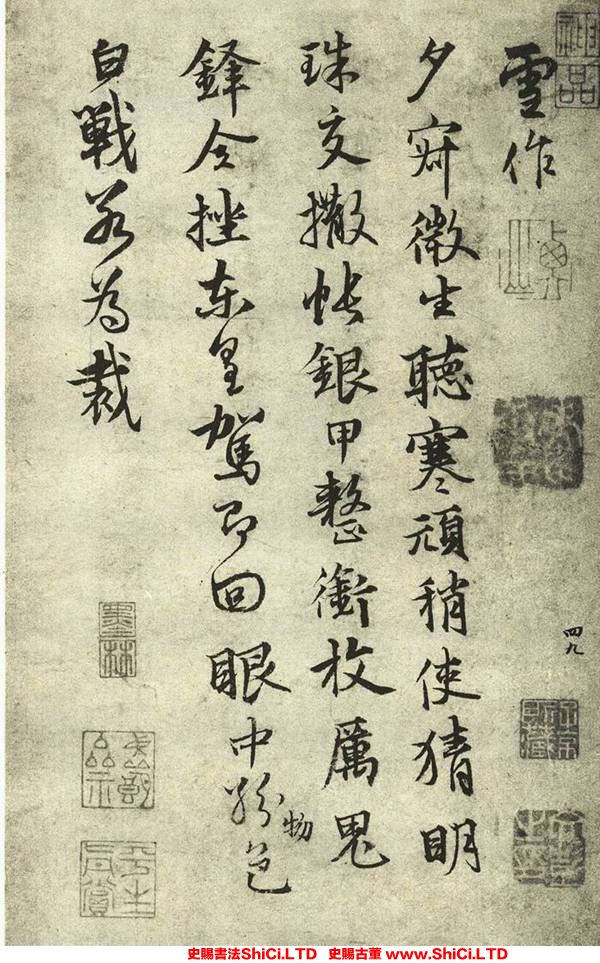 雪作
夕寂微生聽寒頑稍使猜明
珠交撒帳銀甲整銜枚厲鬼
鋒令挫東皇駕即回眼中紛物色
白戰若為裁
神品
四九
墨林
史賜書法ShiCi.LTD 史賜古董 www.ShiCi.LTD